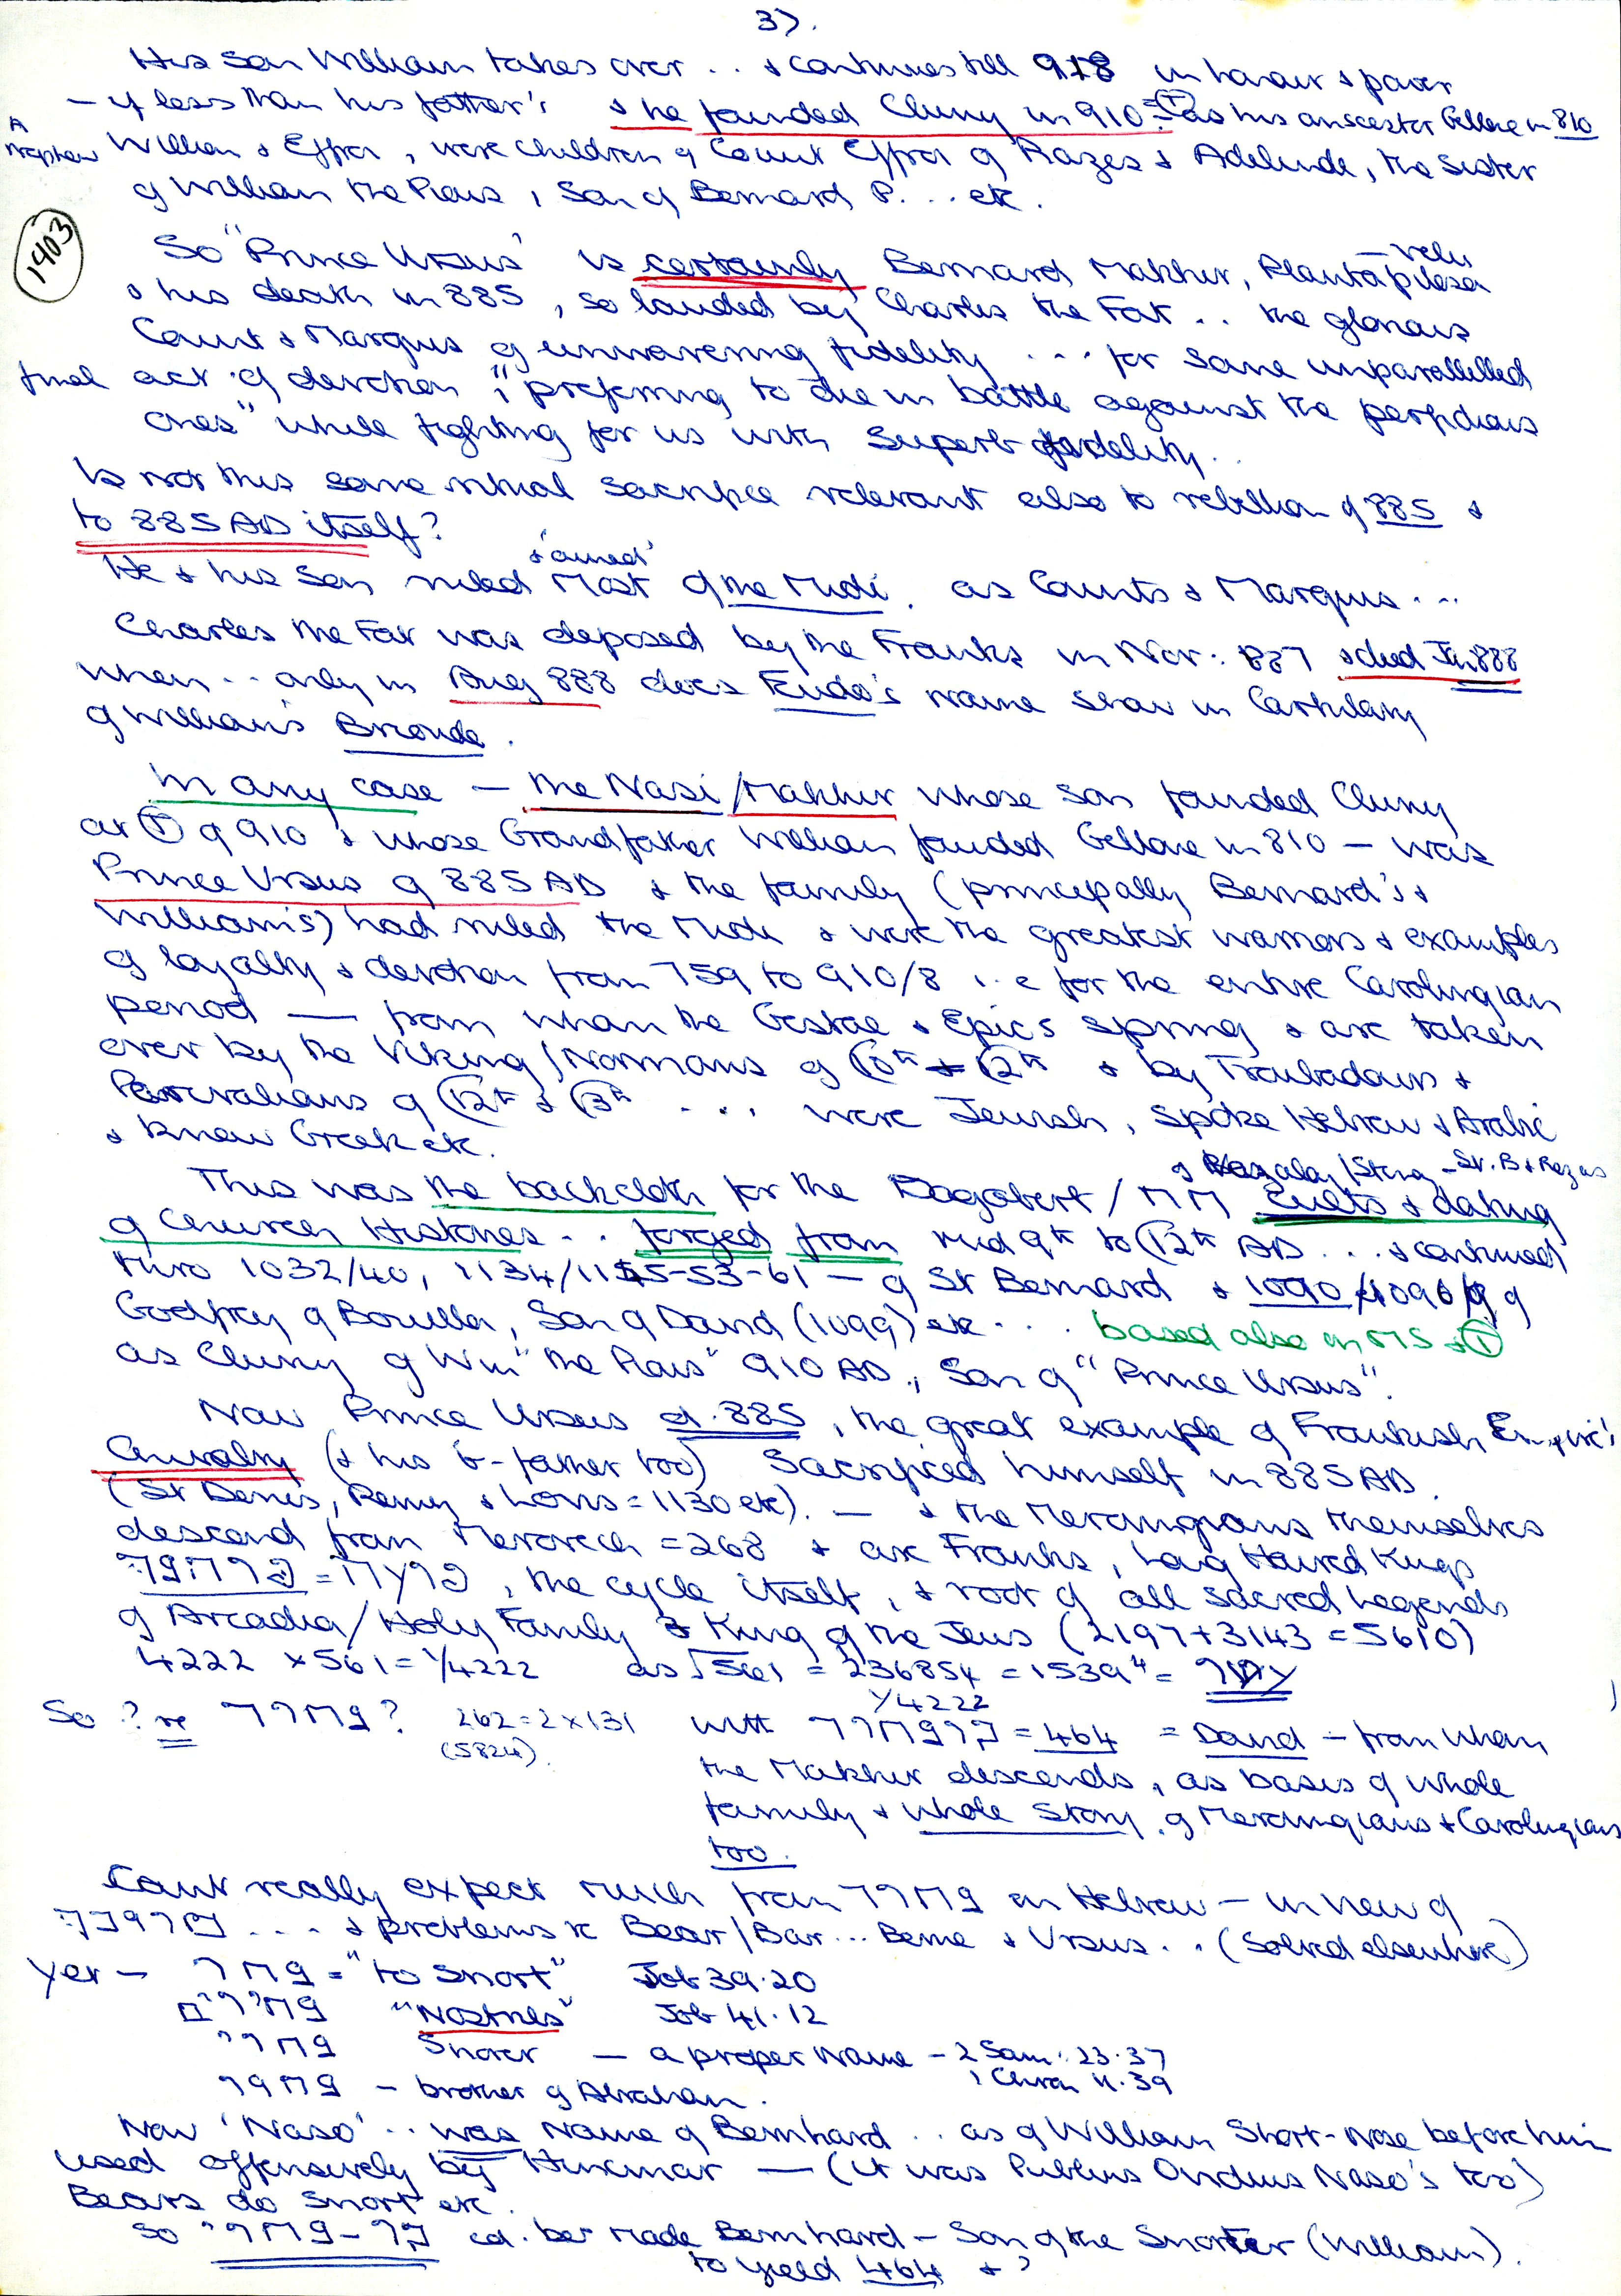 3).
His son William takes over .. & continues till 918 in honour & power
– if less than his father's & he founded Cluny in 910 = (T) as his anscestor Gellone in 810
A nephew William & Effroi, were children of Count Effroi of Razes & Adelinde, the sister
of William the Pious, son of Bernard P. ... etc.
1403
So "Prince Ursus" is certainly Bernard Makhir, Plantapilosa – velu
& his death in 885, so lauded by Charles the Fat .. the glorious
Count & Marquis of unwavering fidelity ... for some unparallelled
final act of devotion, "preferring to die in battle against the perfidious
ones" while fighting for us with superb fidelity..
Is not this same ritual sacrifice relevant also to rebellion of 885 &
to 885 AD itself?
He & his son ruled & 'owned' most of the Midi, as Counts & Marquis ...
Charles the Fat was deposed by the Franks in Nov: 887 & died Jan 888
when .. only in Aug 888 does Eudo's name show in Cartulary
of William's Brioude.
In any case – the Nasi/Makhir whose son founded Cluny
at (T) of 910 & whose Grandfather William founded Gellone in 810 – was
Prince Ursus of 885 AD & the family (principally Bernard's &
William's) had ruled the Midi & were the greatest warriors & examples
of loyalty & devotion from 759 to 910/8 i.e for the entire Carolingian
period — from whom the Gestae & Epics spring & are taken
over by the Viking/Normans of 10th + 12th & by Troubadours &
Percevalians of 12th & 13th .... were Jewish, spoke Hebrew & Arabic
& knew Greek etc.
This was the backcloth for the Dagobert / MM & Magdalen/Stenay – St. B & Razes Cults & dating
of Church Histories .. forged from mid 9th to 12th AD ... & continued
thro 1032/40, 1134/1145-53-61 – of St Bernard & 1090/1096/99 of
Godfroy of Bouillon, Son of David (1099) etc .... based also on MS & (T)
as Cluny of Wm "the Pious" 910 AD., Son of "Prince Ursus".
Now Prince Ursus d. 885, the great example of Frankish Empire's
Chivalry (& his G-father too) sacrificed himself in 885 AD.
(St Denis, Remy & Louis = 1130 etc). – & the Merovingians themselves
descend from Merovech = 268 & are Franks, Long Haired Kings
, the cycle itself, & root of all sacred Legends
of Arcadia/Holy Family & King of the Jews (2197+3143=5610)
4222 × 561 = 1/4222 as √561 = 236854 = 1539" =
1/4222
So ? re ? 262 = 2×131 with = 464 = David – from whom
(5824). the Makhir descends, as basis of whole
family & whole story, of Merovingians & Carolingians
too.
Cant really expect much from נחרי in Hebrew – in view of
.... & problems re Bear/Bar ... Berne & Ursus .. (solved elsewhere)
Yet – נחר = "to snort" Job 39.20
נחירים "Nostrils" Job 41.12
נחרי Snorer – a proper name – 2 Sam: 23.37
1 Chron 11.39
נחור – brother of Abraham.
Now 'Naso' .. was name of Bernhard .. as of William Short-nose before him
used offensively by Hincmar — (it was Publius Ovidius Naso's too)
Bears do snort etc.
So cd. be made Bernhard – Son of the Snorter (William).
to yield 464 &